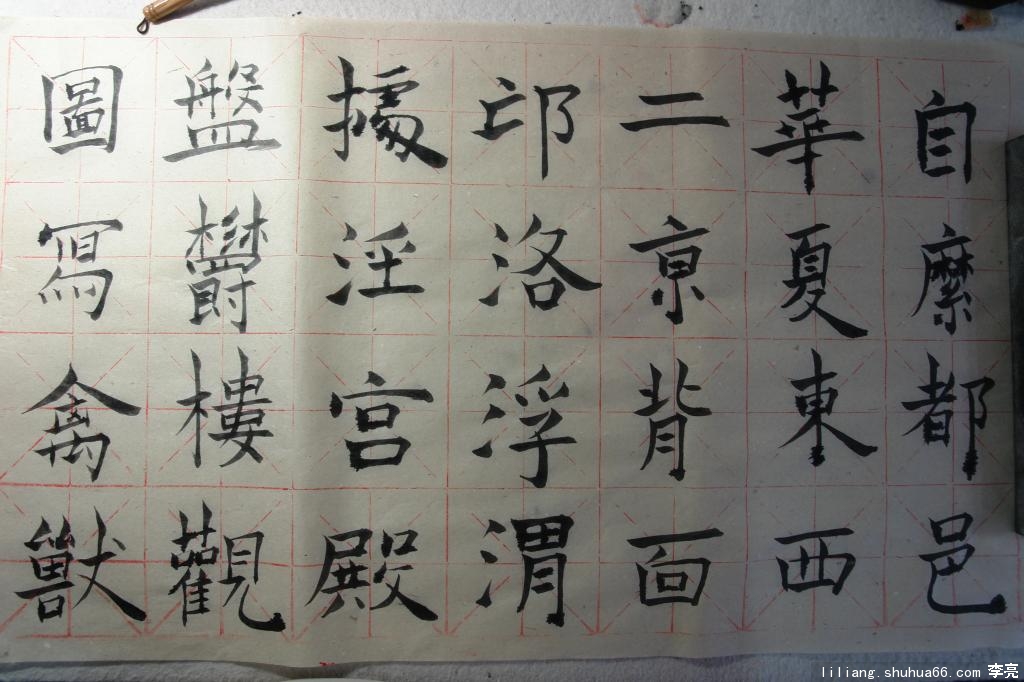 自縻都邑
華夏東西
二亰背靣
邙洛浮渭
據涇宫殿
盤欝樓觀
圖寫禽獸
liliang.shuhua66.com 李亮